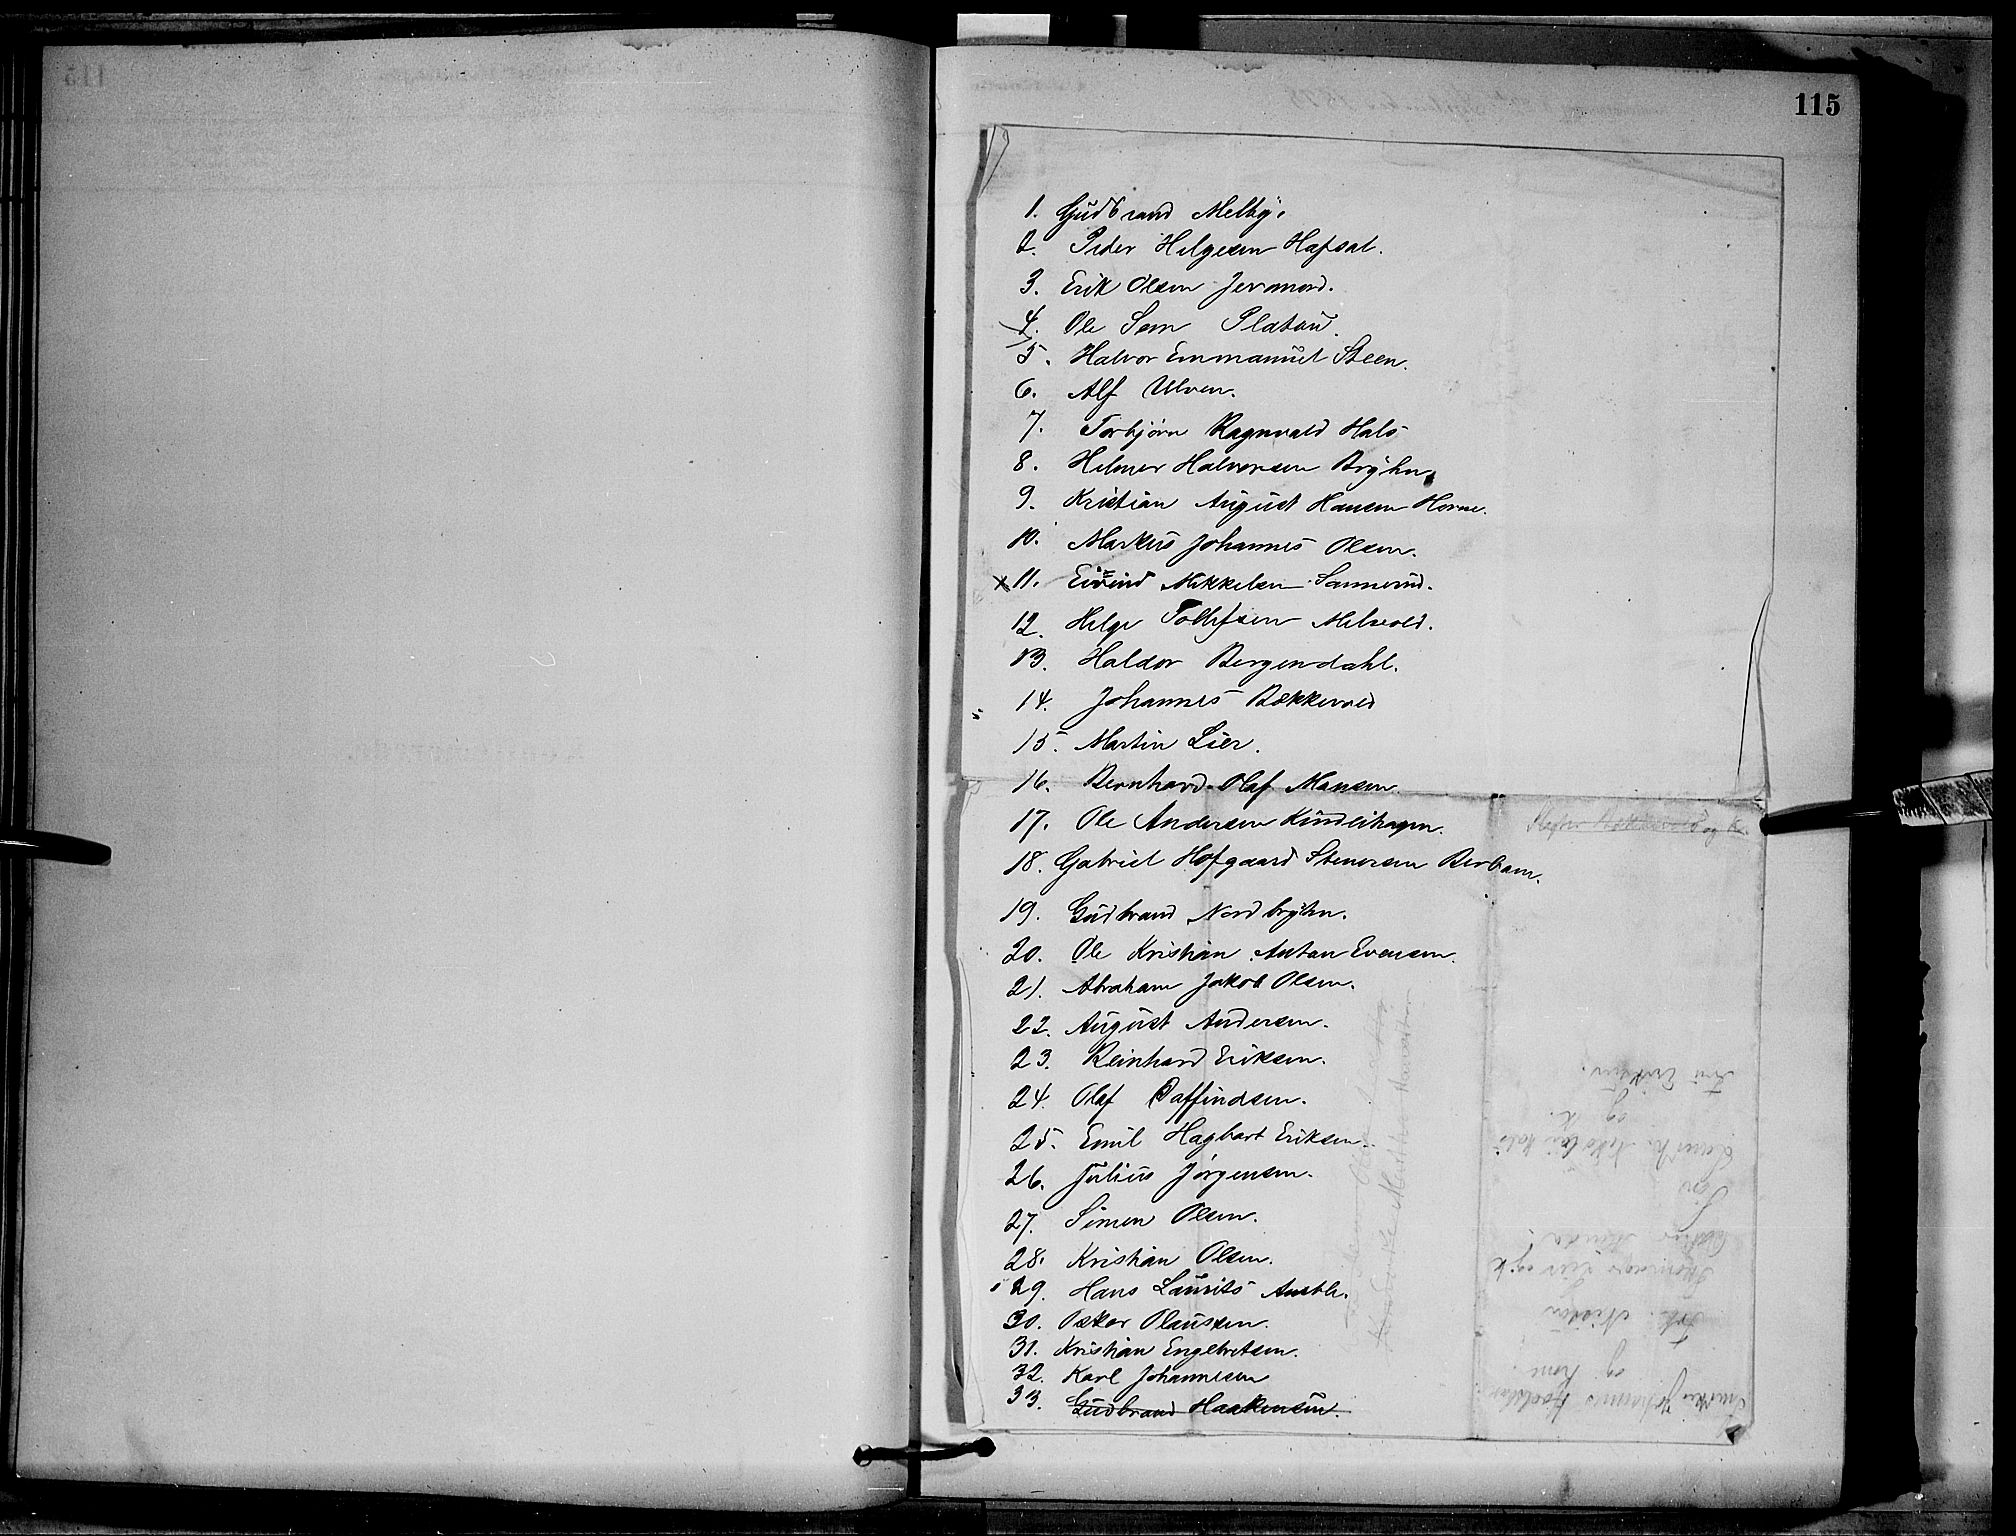 115
1. Gudbrand Melby.
2. Peder Helgesen Hafsal.
3. Erik Olsen
4. Ole Sem Platou.
5. Halvor Emmanuel Steen.
6. Alf Ulven.
7. Torbjørn Ragnvald Hals
8. Helmer Halvorsen Bryhn
9. Kristian August Hansen Horne.
10. Markus Johannes Olsen.
x 11. Eivind Mikkelsen Sannerud.
12. Helge Tollefsen Melsvold.
13. Haldor Bergendahl.
14. Johannes Bækkevold
15. Martin Lier.
16. Bernhard Olaf Hansen.
17. Ole Andersen Kindlihagen.
18. Gabriel Hofgaard Stenersen Berbom.
19. Gudbrand Nordbryhn.
20. Ole Kristian Anton Evensen.
21. Abraham Jakob Olsen.
22. August Andersen.
23. Reinhard Eriksen.
24. Olaf Daffindsen.
25. Emil Hagbart Eriksen.
26. Julius Jørgensen.
27. Simen Olsen.
28. Kristian Olsen.
29. Hans Laurits
30. Oskar Olaussen.
31. Kristian Engebretsen.
32. Karl Johannesen
33. Gudbrand Haakensen.